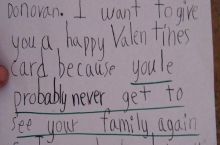 Donovan. I want to give
you a happy Valentines
card because you'le
probably never get to
see your family again